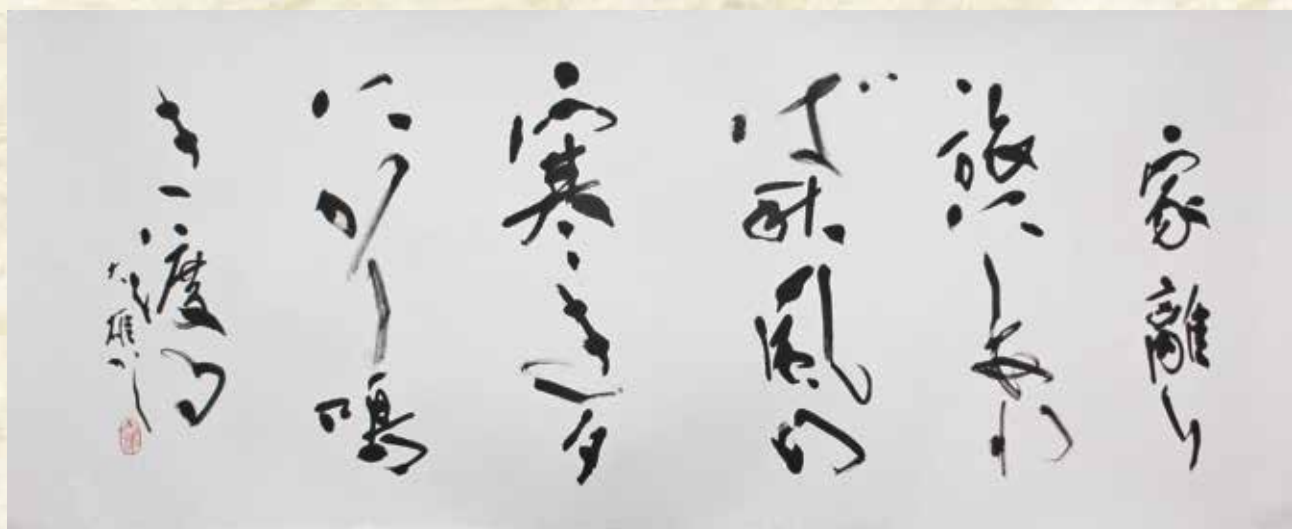 家離り
旅にしあれ
ば秋風の
寒き夕
にかり鳴
き渡る